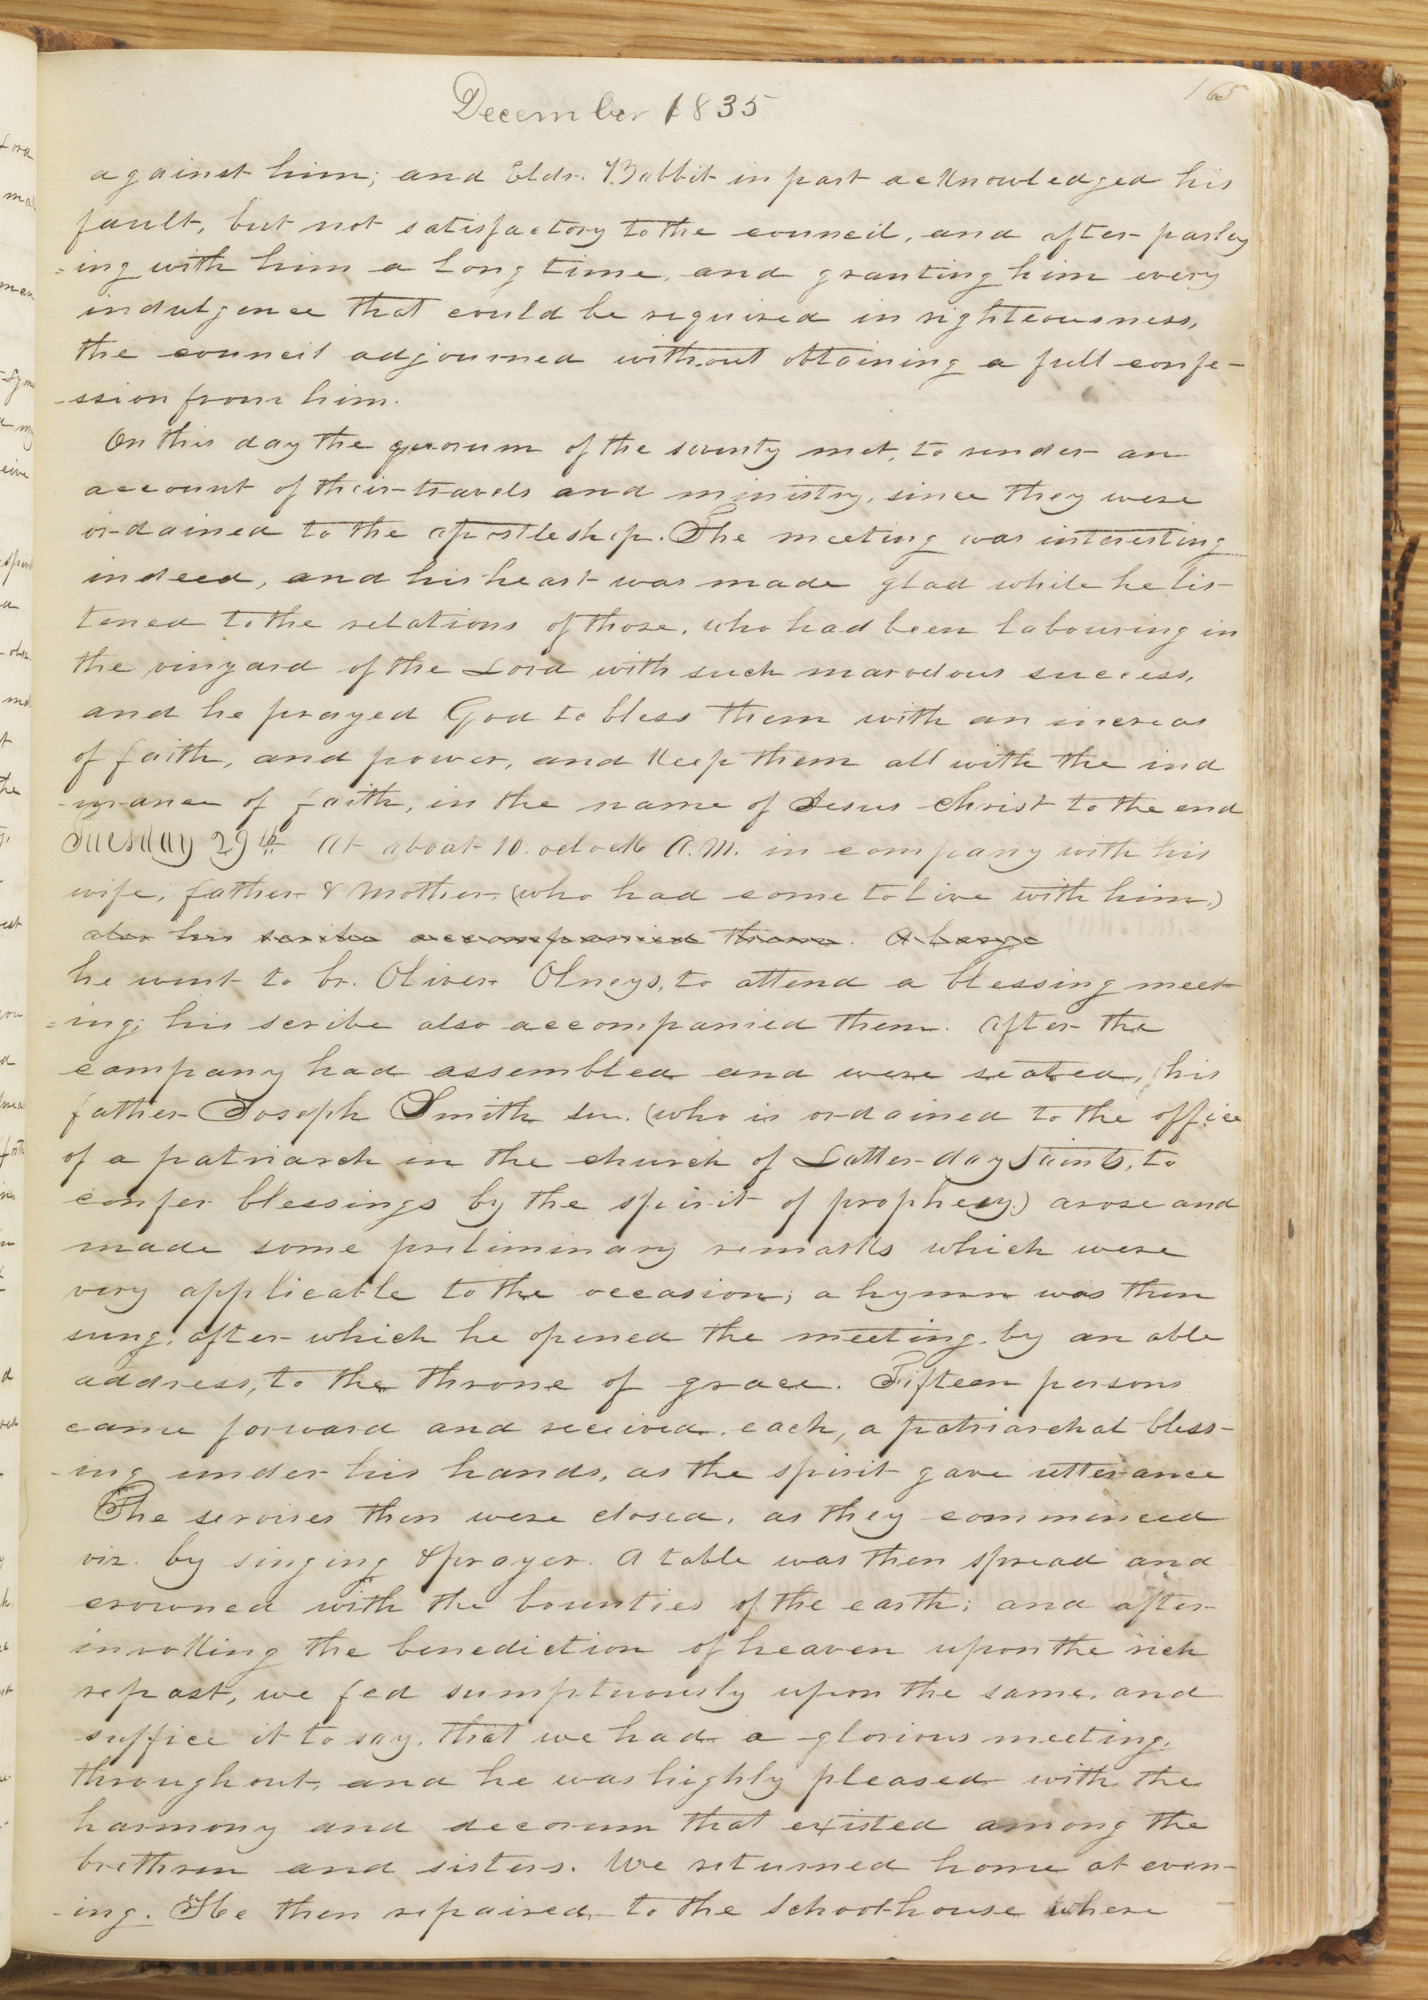 December 1835
165
against him; and Eldr. Babbit in part acknowledged his
fault, but not satisfactory to the council, and after parley
=ing with him a long time, and granting him every
indulgence that could be required in righteousness,
the council adjourned without obtaining a full confe-
-ssion from him.
On this day the quorum of the seventy met, to render an
account of their travels and ministry, since they were
ordained to the apostleship. The meeting was interesting
indeed, and his heart was made glad while he lis-
tened to the relations of those, who had been labouring in
the vinyard of the Lord with such marvelous success,
and he prayed God to bless them with an increas
of faith, and power, and keep them all with the ind
-urance of faith, in the name of Jesus Christ to the end
Tuesday 29th At about 10. oclock A.M. in company with his
wife, father & Mother, (who had come to live with him,)
also his scribe accompanied them. A large
he went to br. Oliver Olneys, to attend a blessing meet-
=ing; his scribe also accompanied them. After the
company had assembled and were seated, his
father Joseph Smith sen. (who is ordained to the office
of a patriarch in the church of Latter-day Saints, to
confer blessings by the spirit of prophecy.) arose and
made some preliminary remarks which were
very applicable to the occasion; a hymn was then
sung; after which he opened the meeting, by an able
address, to the throne of grace. Fifteen persons
came forward and received, each, a patriarchal bless-
-ing under his hands, as the spirit gave utterance
The servises then were closed, as they commenced
viz. by singing & prayer. A table was then spread and
crowned with the bounties of the earth; and after
invoking the benediction of heaven upon the rich
repast, we fed sumptuously upon the same, and
suffice it to say, that we had a glorious meeting,
throughout, and he was highly pleased with the
harmony and decorum that existed among the
brethren and sisters. We returned home at even-
-ing. He then repaired to the School-house where